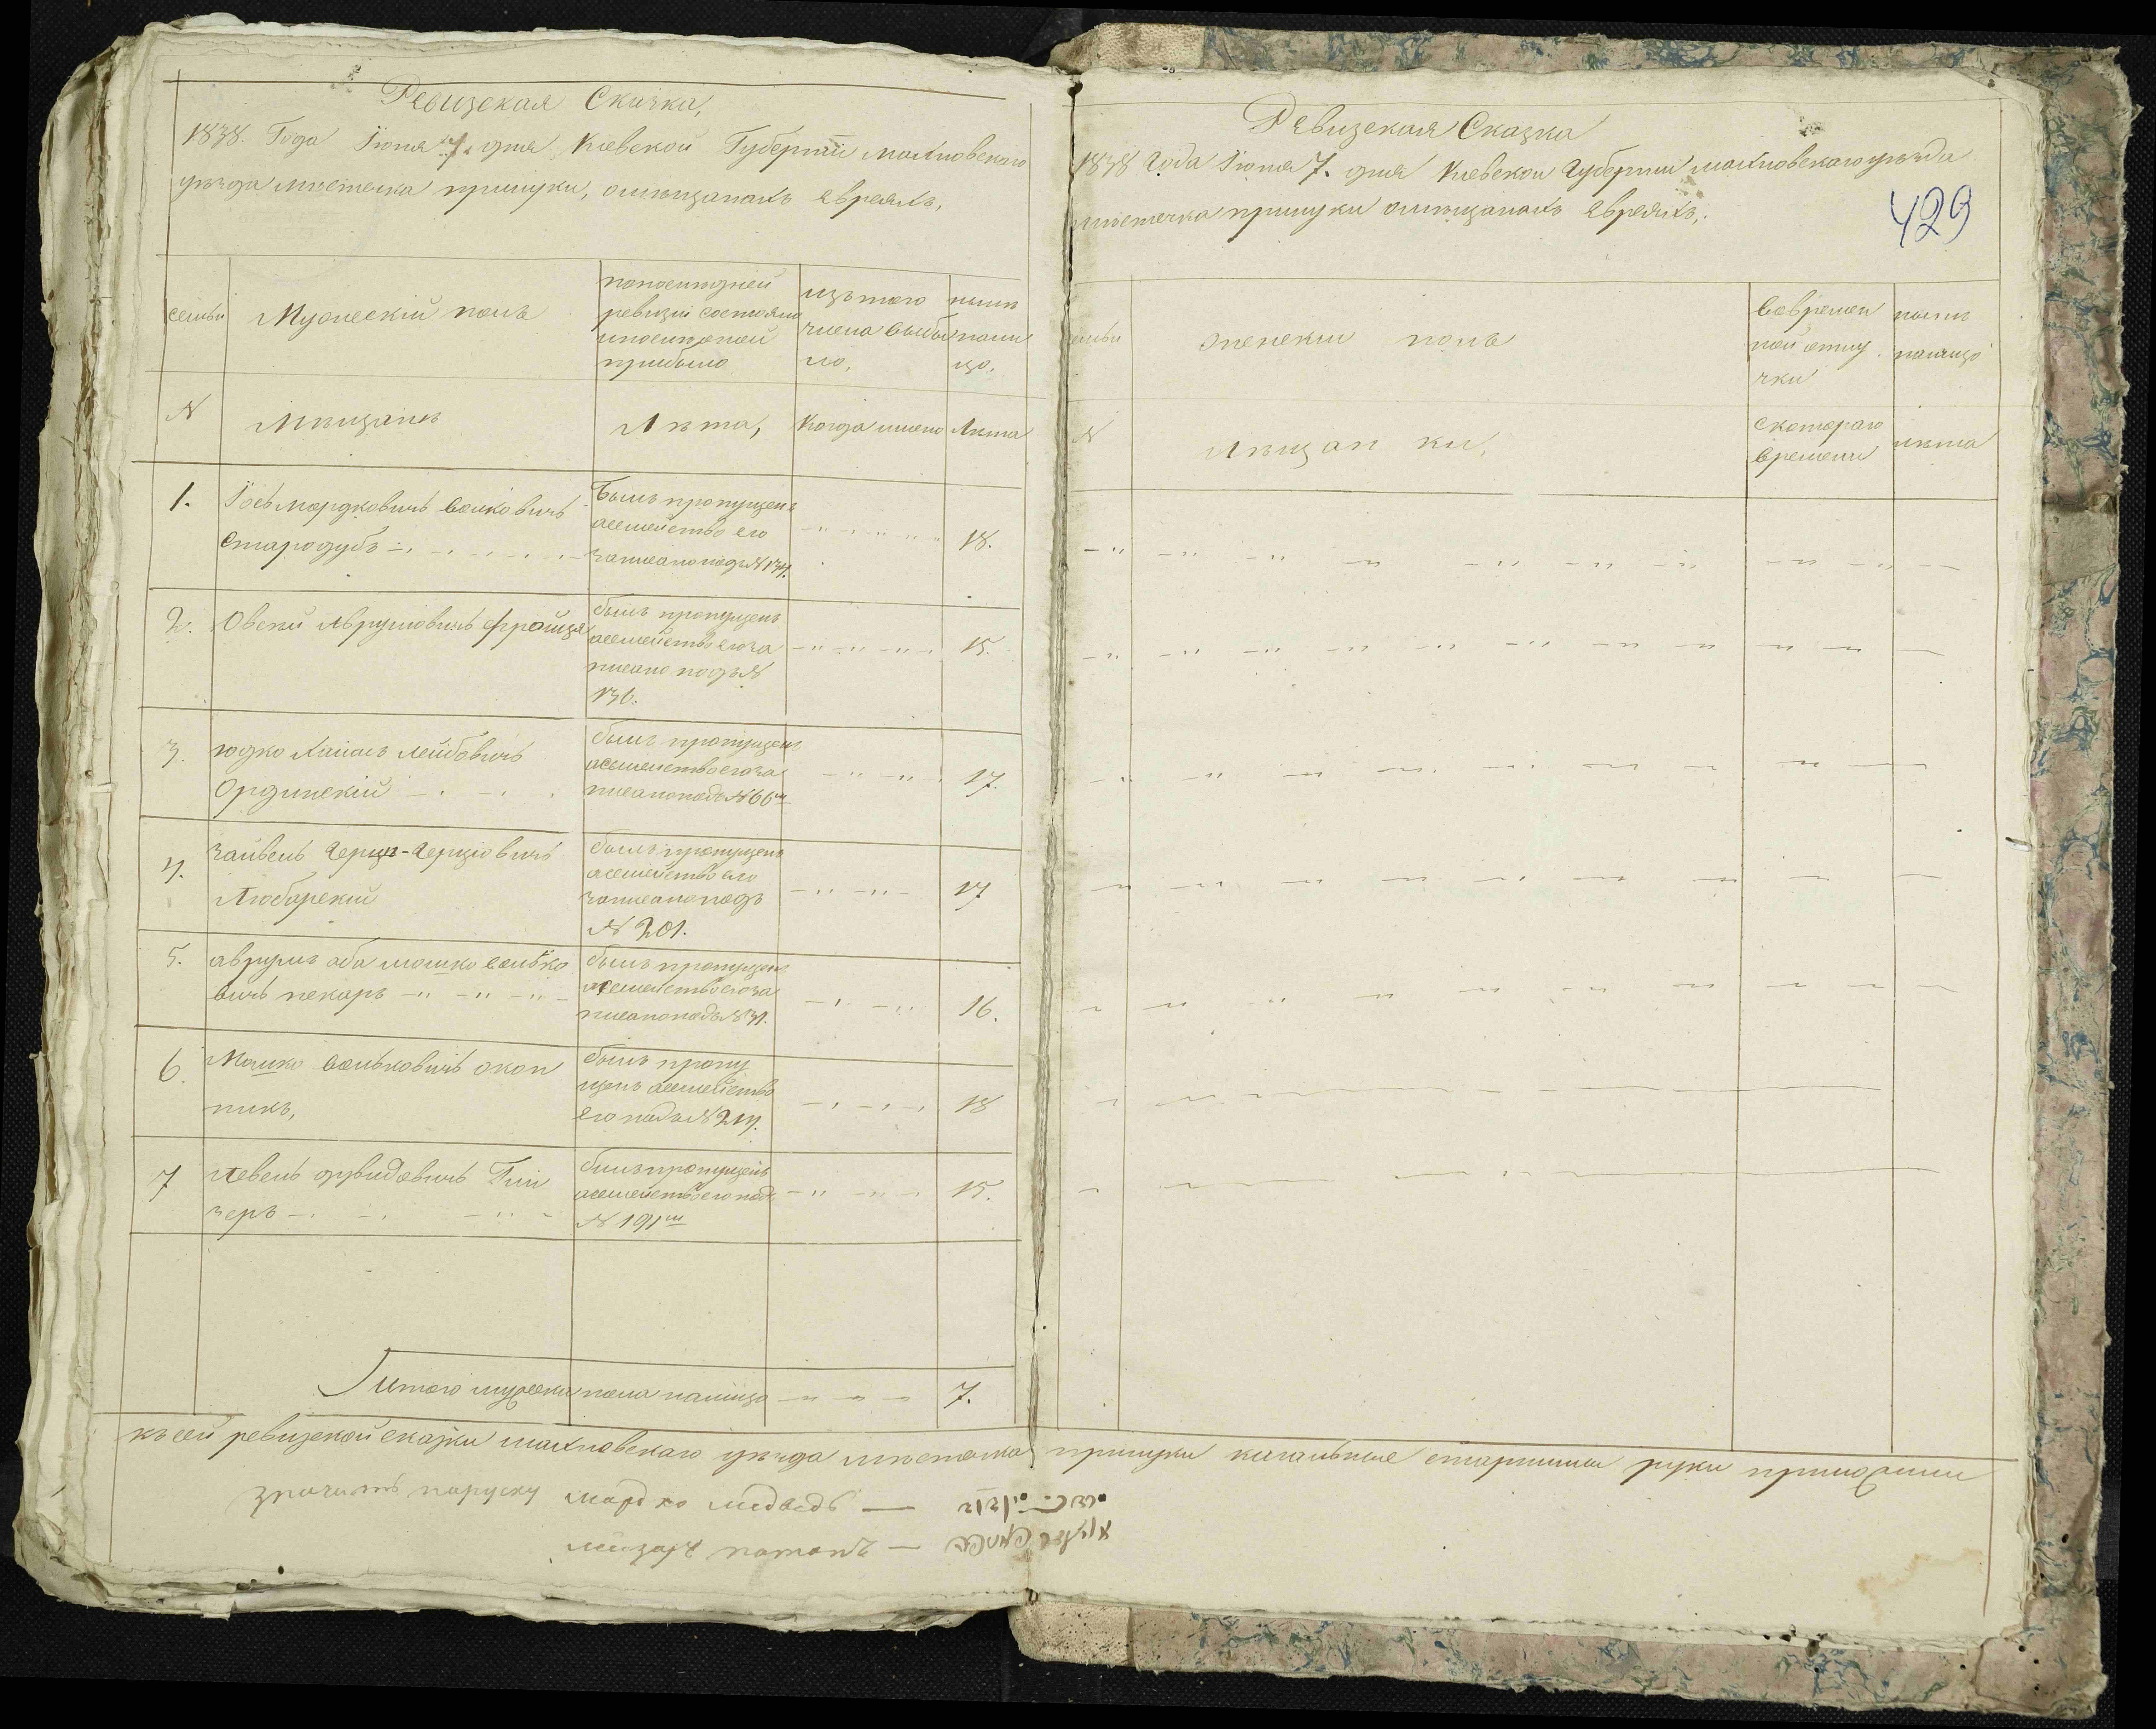 Ревизская Сказка,
1838. Года Іюня 7. дня Кіевской Губерніи Махновскаго
уѣзда мѣстечка прилуки, омѣщанахъ Евреяхъ,
семьи
Мужескій полъ
попослѣдней
ревизіи состояло
ипослѣ оной
прибыло
изъ того
числа выбы
ло,
нынѣ
нали
цо.
N
Мѣщанѣ
Лѣта,
Когда имено
Лѣта
1.
Іось мордковичь волковичь
Стародубъ
Былъ пропущенъ
асемейство его
записано подъ N 134.
18.
2.
Овсей Аврумовичь
былъ пропущенъ
асемейство его за
писано подъ N
136.
15.
3.
юдко Хаимъ лейбовичь
Ординскій
былъ пропущенъ
асемейство его за
писано подъ N 66м
17.
4.
зайвель Герцъ-Герцковичь
Любарскій
былъ пропущенъ
асемейство его
записано подъ
N 201.
17
5.
аврумъ аба мошко волько
вичь пекаръ
былъ пропущенъ
асемейство его за
писано подъ N 31.
16.
6.
Мошко вольковичь окоп
никъ,
былъ пропу
щенъ асемейство
его подъ N 214.
18
7
левень дувидовичь Гли
зеръ
былъ пропущенъ
асемейство его подъ
N 191м
15.
Итого мужеска пола налицо
7.
Ревизская Сказка
1838 Года Іюня 7. дня Кіевской Губерніи Махновскаго уѣзда
мѣстечка прилуки омѣщанахъ Евреяхъ,
429
семьи
женски полъ
Вовремен
ной отлу
чки
нынѣ
налицо
N
Мѣщан ки,
Скотораго
времени
лѣта
ксей ревизской сказки махновскаго уѣзда мѣстечка прилуки кагальные старшины руки приложили
значитъ поруску мордко медведь —
лейзоръ —